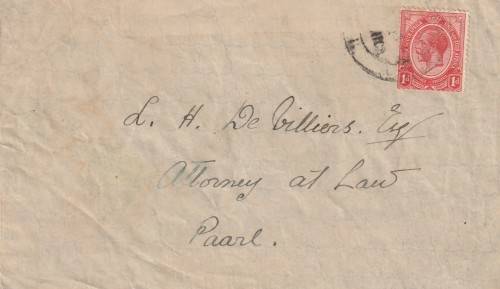 L. H. De Villiers. Esq
Attorney at Law
Paarl.
1d 1d